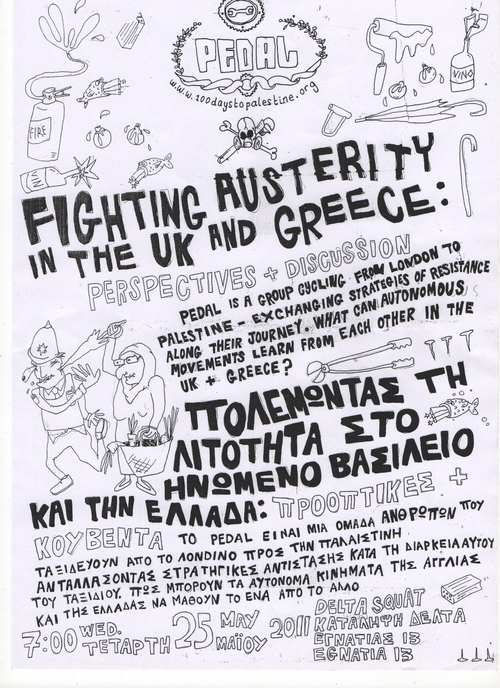 PEDAL
www.100daystopalestine.org
FIRE
VINO
FIGHTING AUSTERITY
IN THE UK AND GREECE:
PERSPECTIVES + DISCUSSION
PEDAL IS A GROUP CYCLING FROM LONDON TO
PALESTINE - EXCHANGING STRATEGIES OF RESISTANCE
ALONG THEIR JOURNEY. WHAT CAN AUTONOMOUS
MOVEMENTS LEARN FROM EACH OTHER IN THE
UK + GREECE?
ΠΟΛΕΜΩΝΤΑΣ ΤΗ
ΛΙΤΟΤΗΤΑ ΣΤΟ
ΗΝΩΜΕΝΟ ΒΑΣΙΛΕΙΟ
ΚΑΙ ΤΗΝ ΕΛΛΑΔΑ: ΠΡΟΟΠΤΙΚΕΣ +
ΚΟΥΒΕΝΤΑ ΤΟ PEDAL ΕΙΝΑΙ ΜΙΑ ΟΜΑΔΑ ΑΝΘΡΩΠΩΝ ΠΟΥ
ΤΑΞΙΔΕΥΟΥΝ ΑΠΟ ΤΟ ΛΟΝΔΙΝΟ ΠΡΟΣ ΤΗΝ ΠΑΛΑΙΣΤΙΝΗ
ΑΝΤΑΛΛΑΣΟΝΤΑΣ ΣΤΡΑΤΗΓΙΚΕΣ ΑΝΤΙΣΤΑΣΗΣ ΚΑΤΑ ΤΗ ΔΙΑΡΚΕΙΑ ΑΥΤΟΥ
ΤΟΥ ΤΑΞΙΔΙΟΥ. ΠΩΣ ΜΠΟΡΟΥΝ ΤΑ ΑΥΤΟΝΟΜΑ ΚΙΝΗΜΑΤΑ ΤΗΣ ΑΓΓΛΙΑΣ
ΚΑΙ ΤΗΣ ΕΛΛΑΔΑΣ ΝΑ ΜΑΘΟΥΝ ΤΟ ΕΝΑ ΑΠΟ ΤΟ ΑΛΛΟ
7:00 WED. ΤΕΤΑΡΤΗ 25 MAY ΜΑΪΟΥ 2011
DELTA SQUAT
ΚΑΤΑΛΗΨΗ ΔΕΛΤΑ
ΕΓΝΑΤΙΑΣ 13
EGNATIA 13